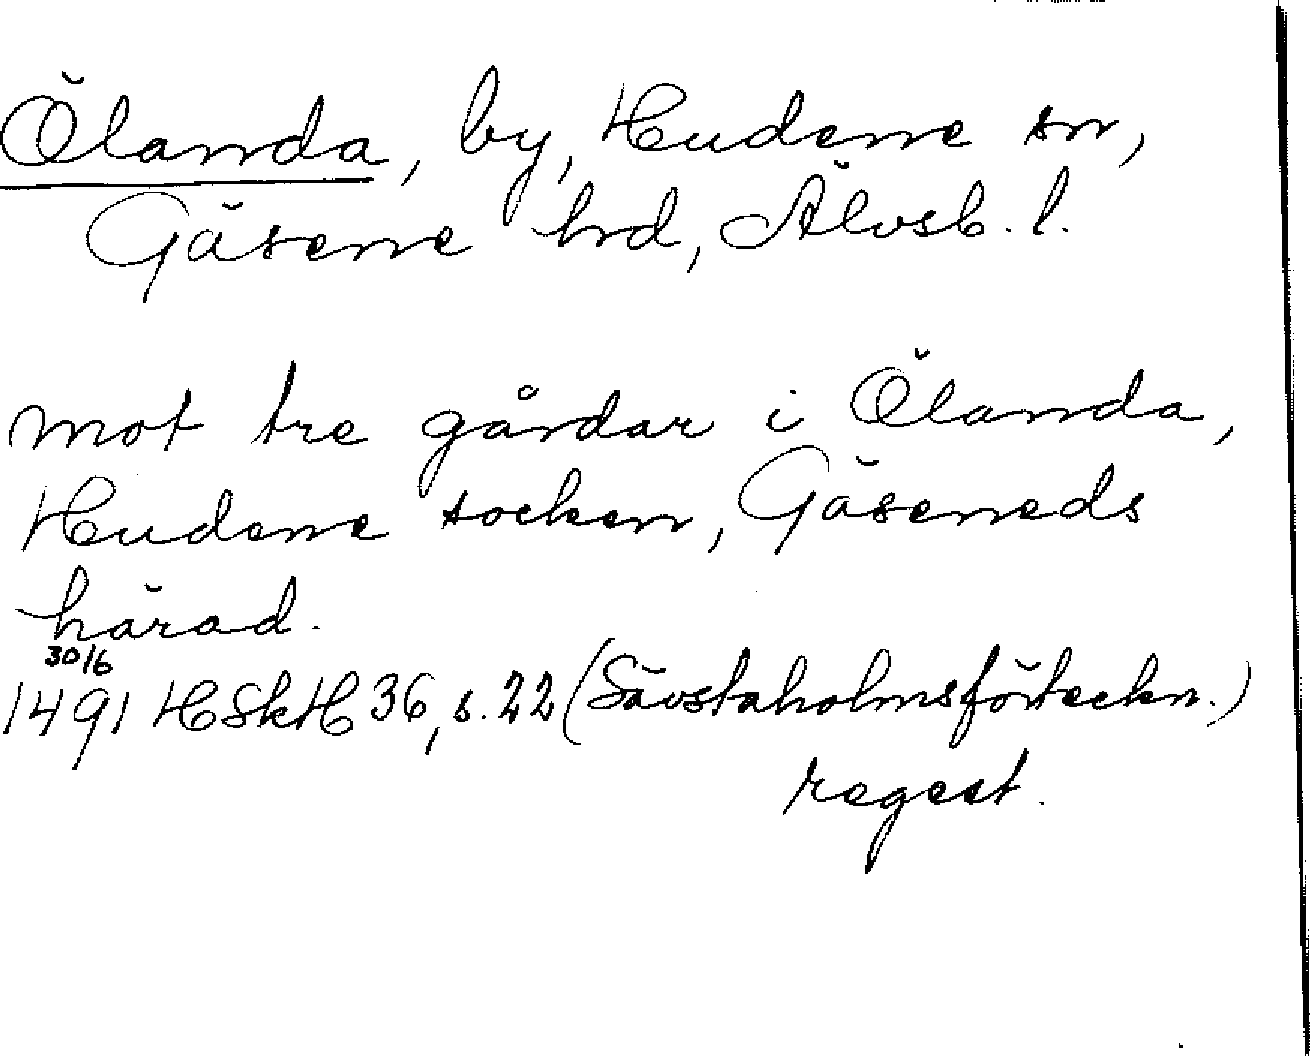 Ölanda, by, Hudene sn,
Gäsene hrd, Älvsb. l.
mot tre gårdar i Ölanda,
Hudene socken, Gäseneds
härad.
30/6
1491 HSkH 36, s. 22 (Sävstaholmsförteckn.)
regest.